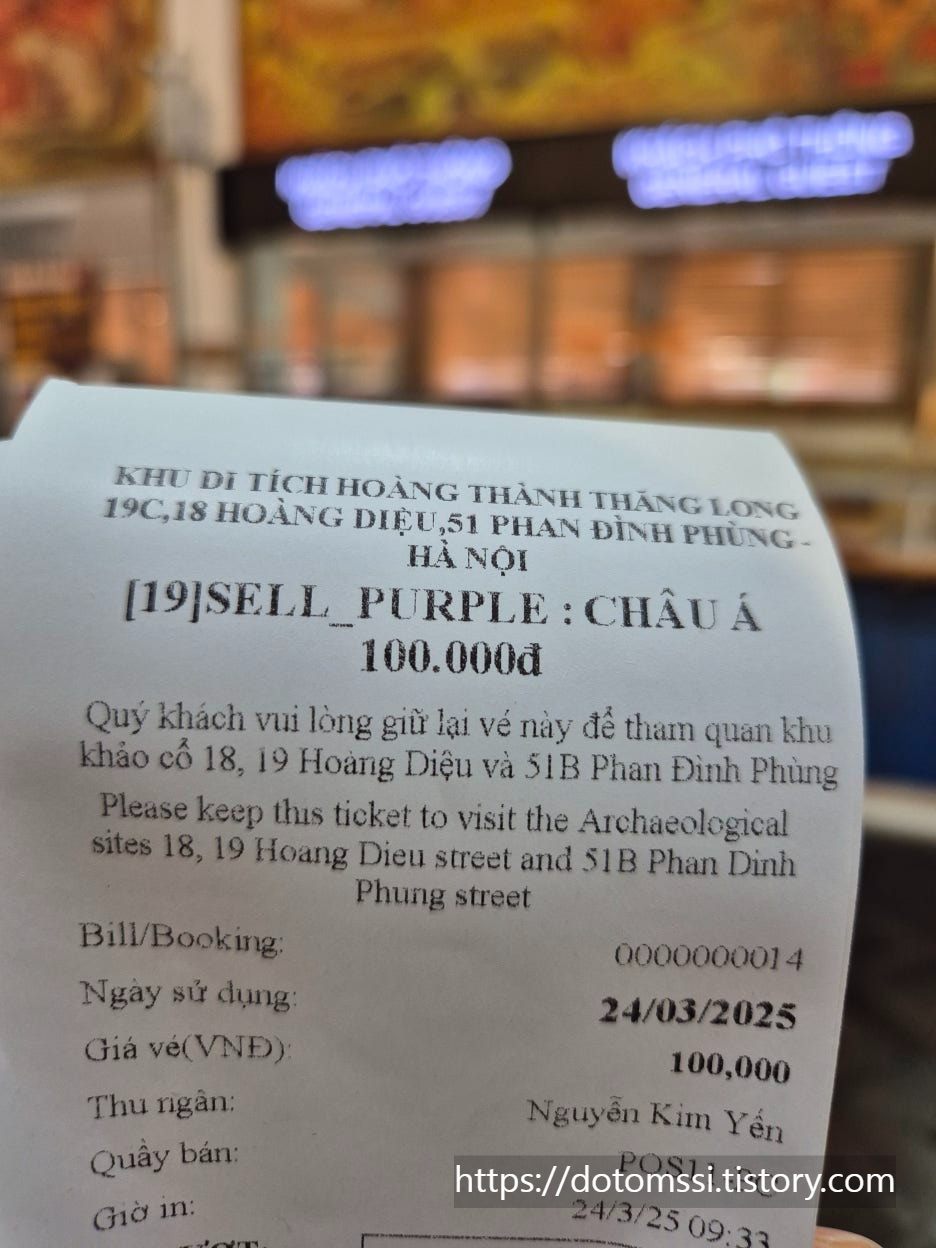 KHU DI TÍCH HOÀNG THÀNH THĂNG LONG
19C,18 HOÀNG DIỆU,51 PHAN ĐÌNH PHÙNG -
HÀ NỘI
[19]SELL_PURPLE : CHÂU Á
100.000đ
Quý khách vui lòng giữ lại vé này để tham quan khu
khảo cổ 18, 19 Hoàng Diệu và 51B Phan Đình Phùng
Please keep this ticket to visit the Archaeological
sites 18, 19 Hoang Dieu street and 51B Phan Dinh
Phung street
Bill/Booking: 0000000014
Ngày sử dụng: 24/03/2025
Giá vé(VNĐ): 100,000
Thu ngân: Nguyễn Kim Yến
Quầy bán:
https://dotomssi.tistory.com
Giờ in: 24/3/25 09:33